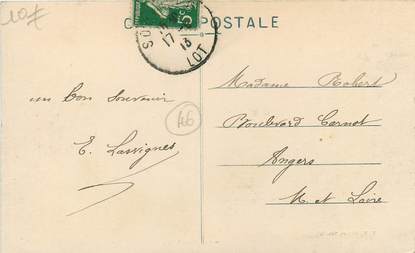 10f
CARTE POSTALE
5c
SO
17
13
LOT
un bon souvenir
E. Lassignes
46
Madame Robert
Boulevard Carnot
Angers
M. et Loire